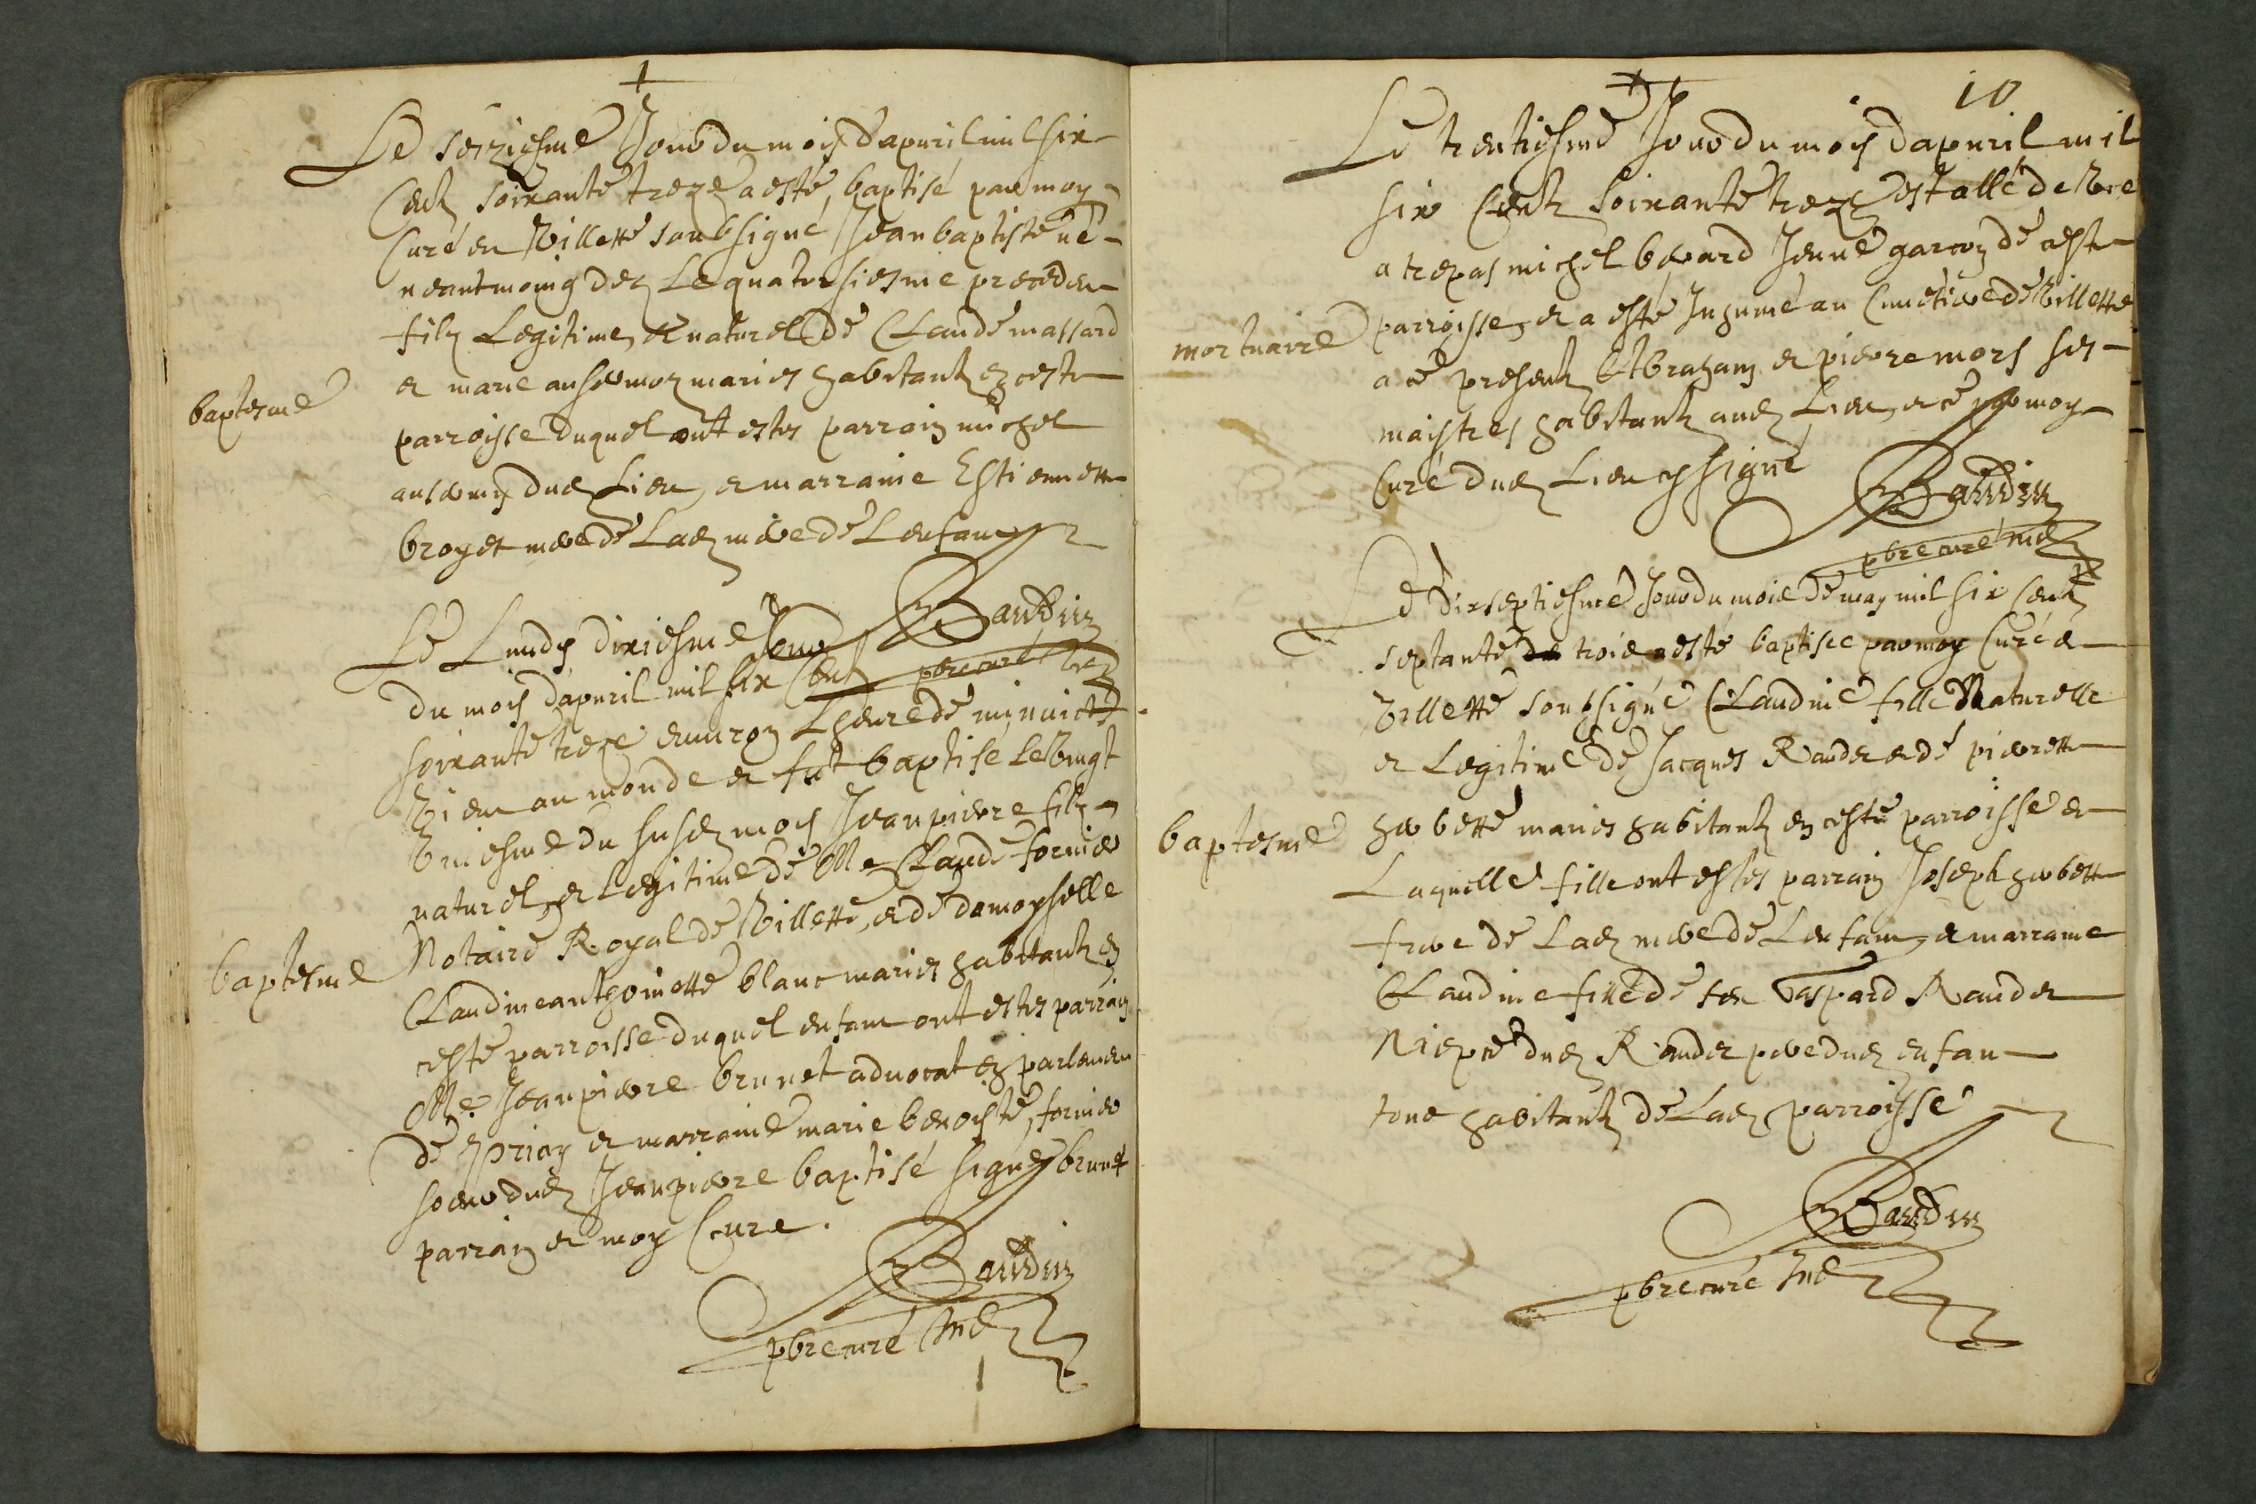 Le seiziesme Jour du mois d'apuril mil six
Centz soixante treze a esté baptisé par moy
Curé de Villette soubsigné Jean baptiste né
neantmoing dez Le quatorsiesme precedent
filz Legitime et naturel de Claude massard
et marie
mariés habitantz en ceste
parroisse duquel ont estés parrain michel
dud Lieu et marraine Estiennette
broyet mere de Lad mere de Lenfant
baptesme
Baudin
pbre curé
Le Lundy dixiesme Jour
du mois d'apuril mil six Centz
soixante treze enuiron Lheure de minuict
Vien au monde et fut baptisé le Vingt
Vniesme du susd mois Jean pierre filz
naturel et Legitime de Me Claude fornier
Notaire Royal de Villette, et de damoyselle
Claudine anthoinette blanc mariés habitantz en
ceste parroisse duquel enfant ont estés parrain
Me Jean pierre brunet aduocat en parlement
de priay et marraine marie benoiste fornier
soeur dud Jean pierre baptisé signé brunet
parrain et moy Curé.
baptesme
Baudin
pbre curé
10
Le trentiesme Jour du mois dapuril mil
six Centz soixante treze est allé de Vie
a trepas michel berard Jeune garcon de ceste
parroisse, et a esté Inhumé au Cimetiere de Villette
a ce presentz Abraham et pierre mors ses
maistres habitantz aud Lieu, et ce par moy
Curé dud Lieu signé
mortuaire
Baudin
pbre curé
Le dixseptiesme Jour du mois de may mil six Centz
septante trois a esté baptisée par moy Curé de
Villette soubsigné Claudine fille Naturelle
et Legitime de Jacques Rander et de pierrette
herbette mariés habitantz en ceste parroisse et
Laquelle fille ont estés parrain Joseph herbette
frere de Lad mere de Lenfant et marraine
Claudine fille de feu Gaspard Rander
Niepce dud Rander pere dud enfant
tous habitantz de Lad parroisse
baptesme
Baudin
pbre curé